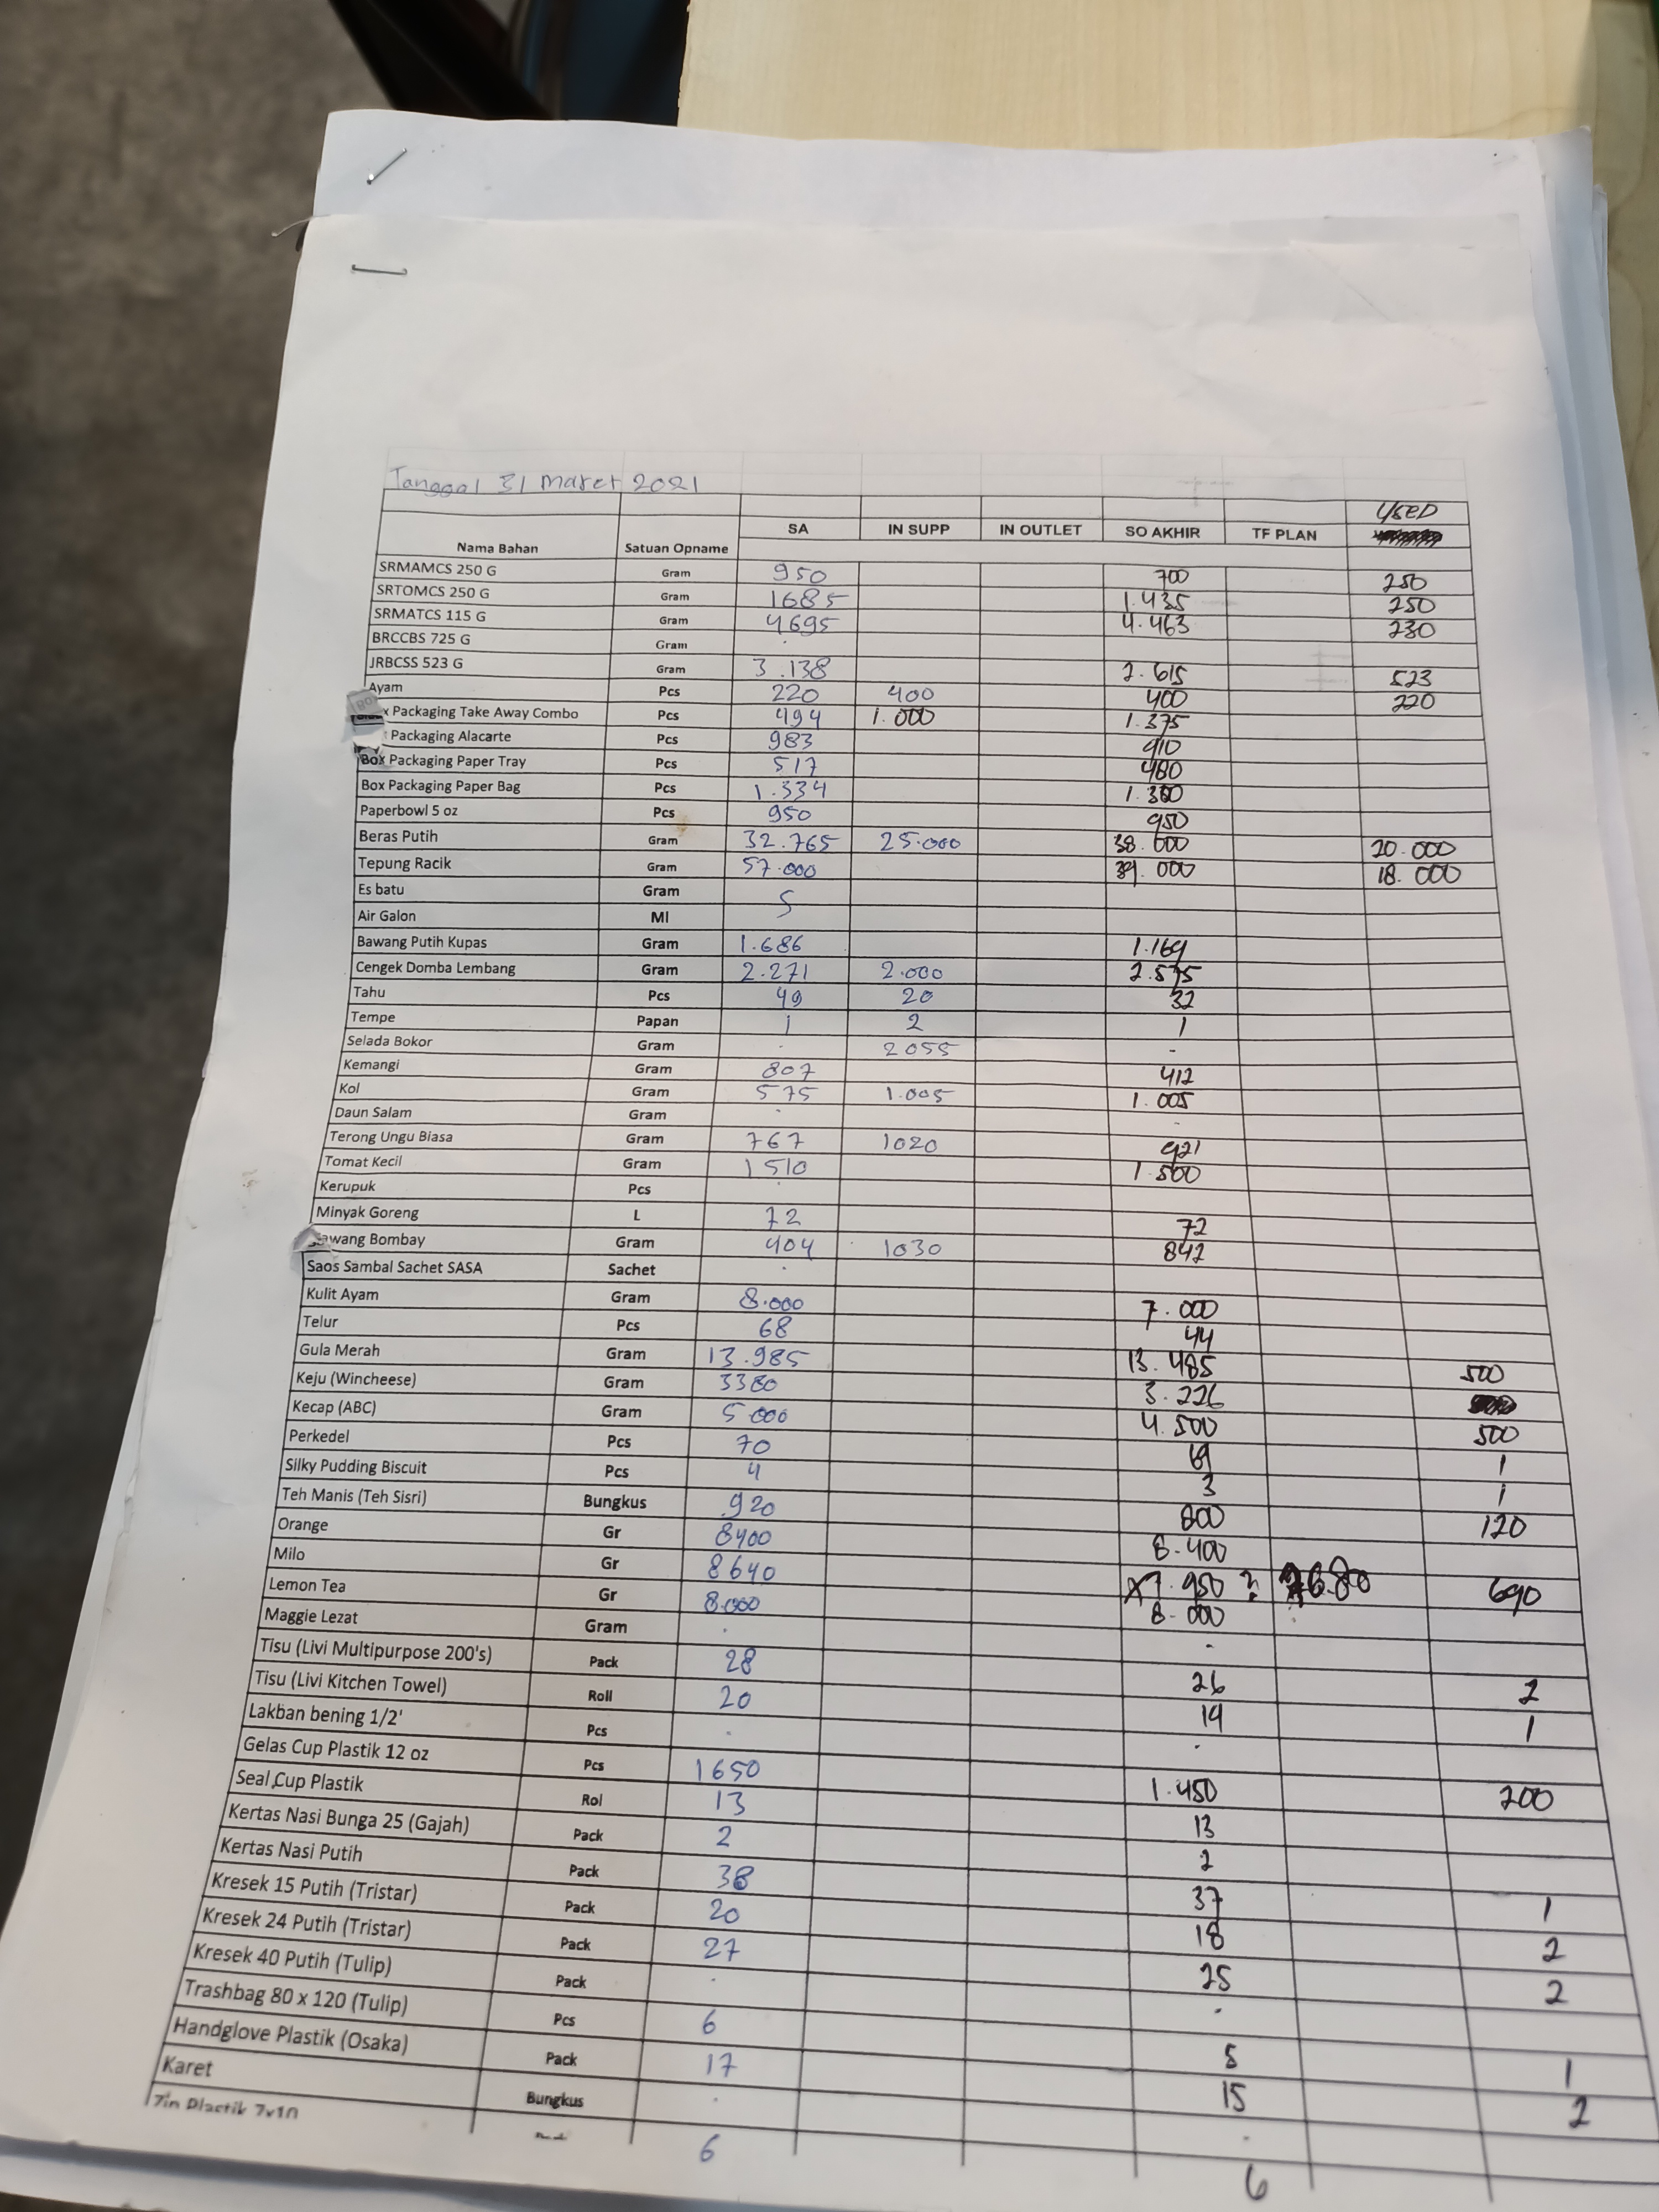 Tanggal 31 Maret 2021
USED
Nama Bahan Satuan Opname SA IN SUPP IN OUTLET SO AKHIR TF PLAN
SRMAMCS 250 G Gram 950 700 250
SRTOMCS 250 G Gram 1685 1.435 250
SRMATCS 115 G Gram 4695 4.463 230
BRCCBS 725 G Gram
JRBCSS 523 G Gram 3.138 2.615 523
Ayam Pcs 220 400 400 220
x Packaging Take Away Combo Pcs 494 1.000 1.375
Packaging Alacarte Pcs 983 910
Box Packaging Paper Tray Pcs 517 480
Box Packaging Paper Bag Pcs 1.334 1.300
Paperbowl 5 oz Pcs 950 950
Beras Putih Gram 32.765 25.000 38.000 20.000
Tepung Racik Gram 57.000 39.000 18.000
Es batu Gram 5
Air Galon Ml
Bawang Putih Kupas Gram 1.686 1.169
Cengek Domba Lembang Gram 2.271 2.000 2.575
Tahu Pcs 49 20 32
Tempe Papan 1 2 1
Selada Bokor Gram - 2055 -
Kemangi Gram 807 412
Kol Gram 575 1.005 1.005
Daun Salam Gram - -
Terong Ungu Biasa Gram 767 1020 921
Tomat Kecil Gram 1510 1.500
Kerupuk Pcs -
Minyak Goreng L 72 72
awang Bombay Gram 404 1030 842
Saos Sambal Sachet SASA Sachet -
Kulit Ayam Gram 8.000 7.000
Telur Pcs 68 44
Gula Merah Gram 13.985 13.485 500
Keju (Wincheese) Gram 3380 3.226
Kecap (ABC) Gram 5000 4.500 500
Perkedel Pcs 70 69 1
Silky Pudding Biscuit Pcs 4 3 1
Teh Manis (Teh Sisri) Bungkus 920 800 120
Orange Gr 8400 8.400
Milo Gr 8640 7.950 ? 7680 690
Lemon Tea Gr 8.000 8.000
Maggie Lezat Gram - -
Tisu (Livi Multipurpose 200's) Pack 28 26 2
Tisu (Livi Kitchen Towel) Roll 20 19 1
Lakban bening 1/2' Pcs - -
Gelas Cup Plastik 12 oz Pcs 1650 1.450 200
Seal Cup Plastik Rol 13 13
Kertas Nasi Bunga 25 (Gajah) Pack 2 2
Kertas Nasi Putih Pack 38 37 1
Kresek 15 Putih (Tristar) Pack 20 18 2
Kresek 24 Putih (Tristar) Pack 27 25 2
Kresek 40 Putih (Tulip) Pack - -
Trashbag 80 x 120 (Tulip) Pcs 6 5 1
Handglove Plastik (Osaka) Pack 17 15 2
Karet Bungkus - -
Zip Plastik 7x10 6 6